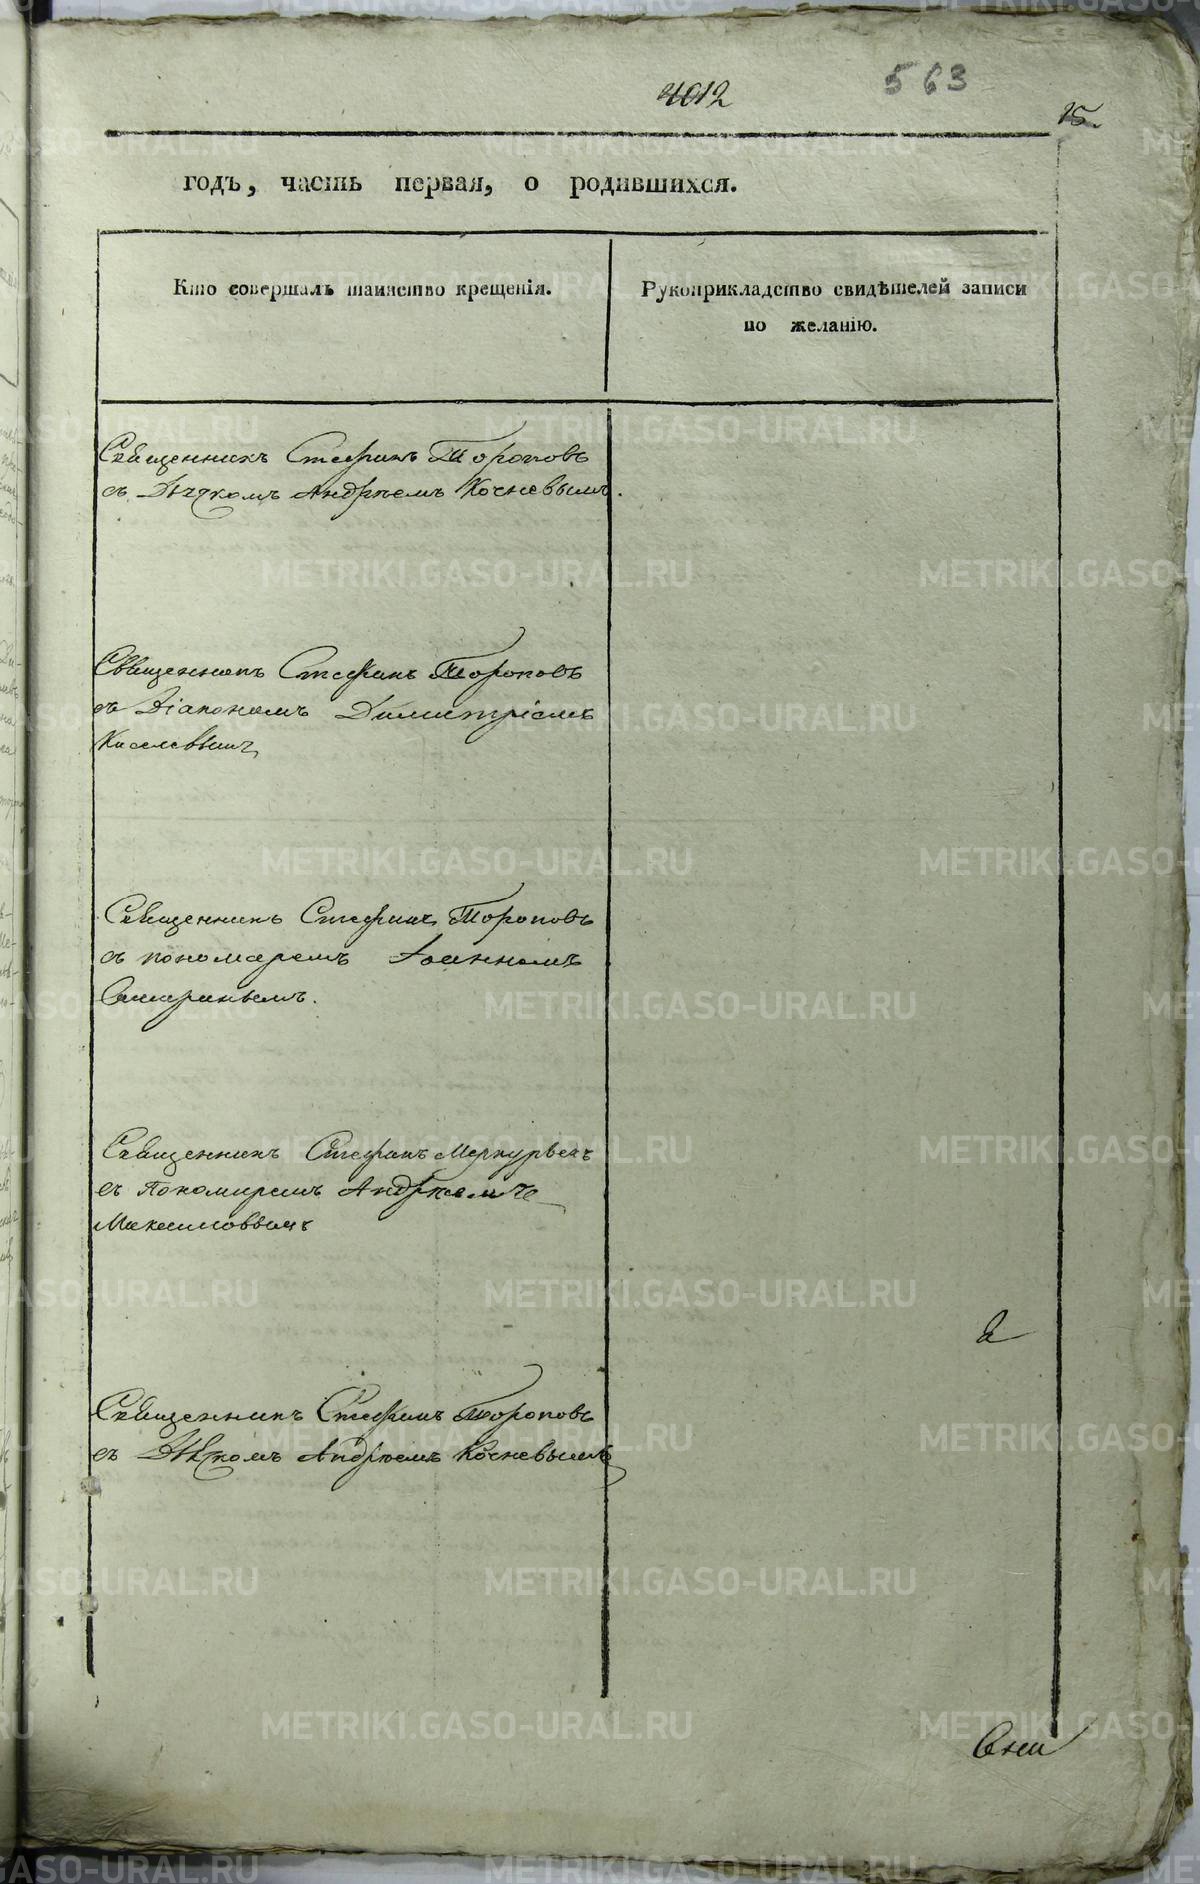 4012
563
15.
годъ, часть первая, о родившихся.
Кто совершалъ таинство крещенія.
Рукоприкладство свидѣтелей записи
по желанію.
Священникъ Стефанъ Тороповъ
съ Дьячкомъ Андрѣемъ Кочневымъ.
Священникъ Стефанъ Тороповъ
съ Діакономъ Димитріемъ
Киселевымъ
Священникъ Стефанъ Тороповъ
съ пономаремъ Іоанномъ
Самаринымъ.
Священникъ Стефанъ Меркурьевъ
съ Пономаремъ Андрѣемъ
Максимовымъ
Священникъ Стефанъ Тороповъ
съ Дьячкомъ Андрѣемъ Кочневымъ
METRIKI.GASO-URAL.RU